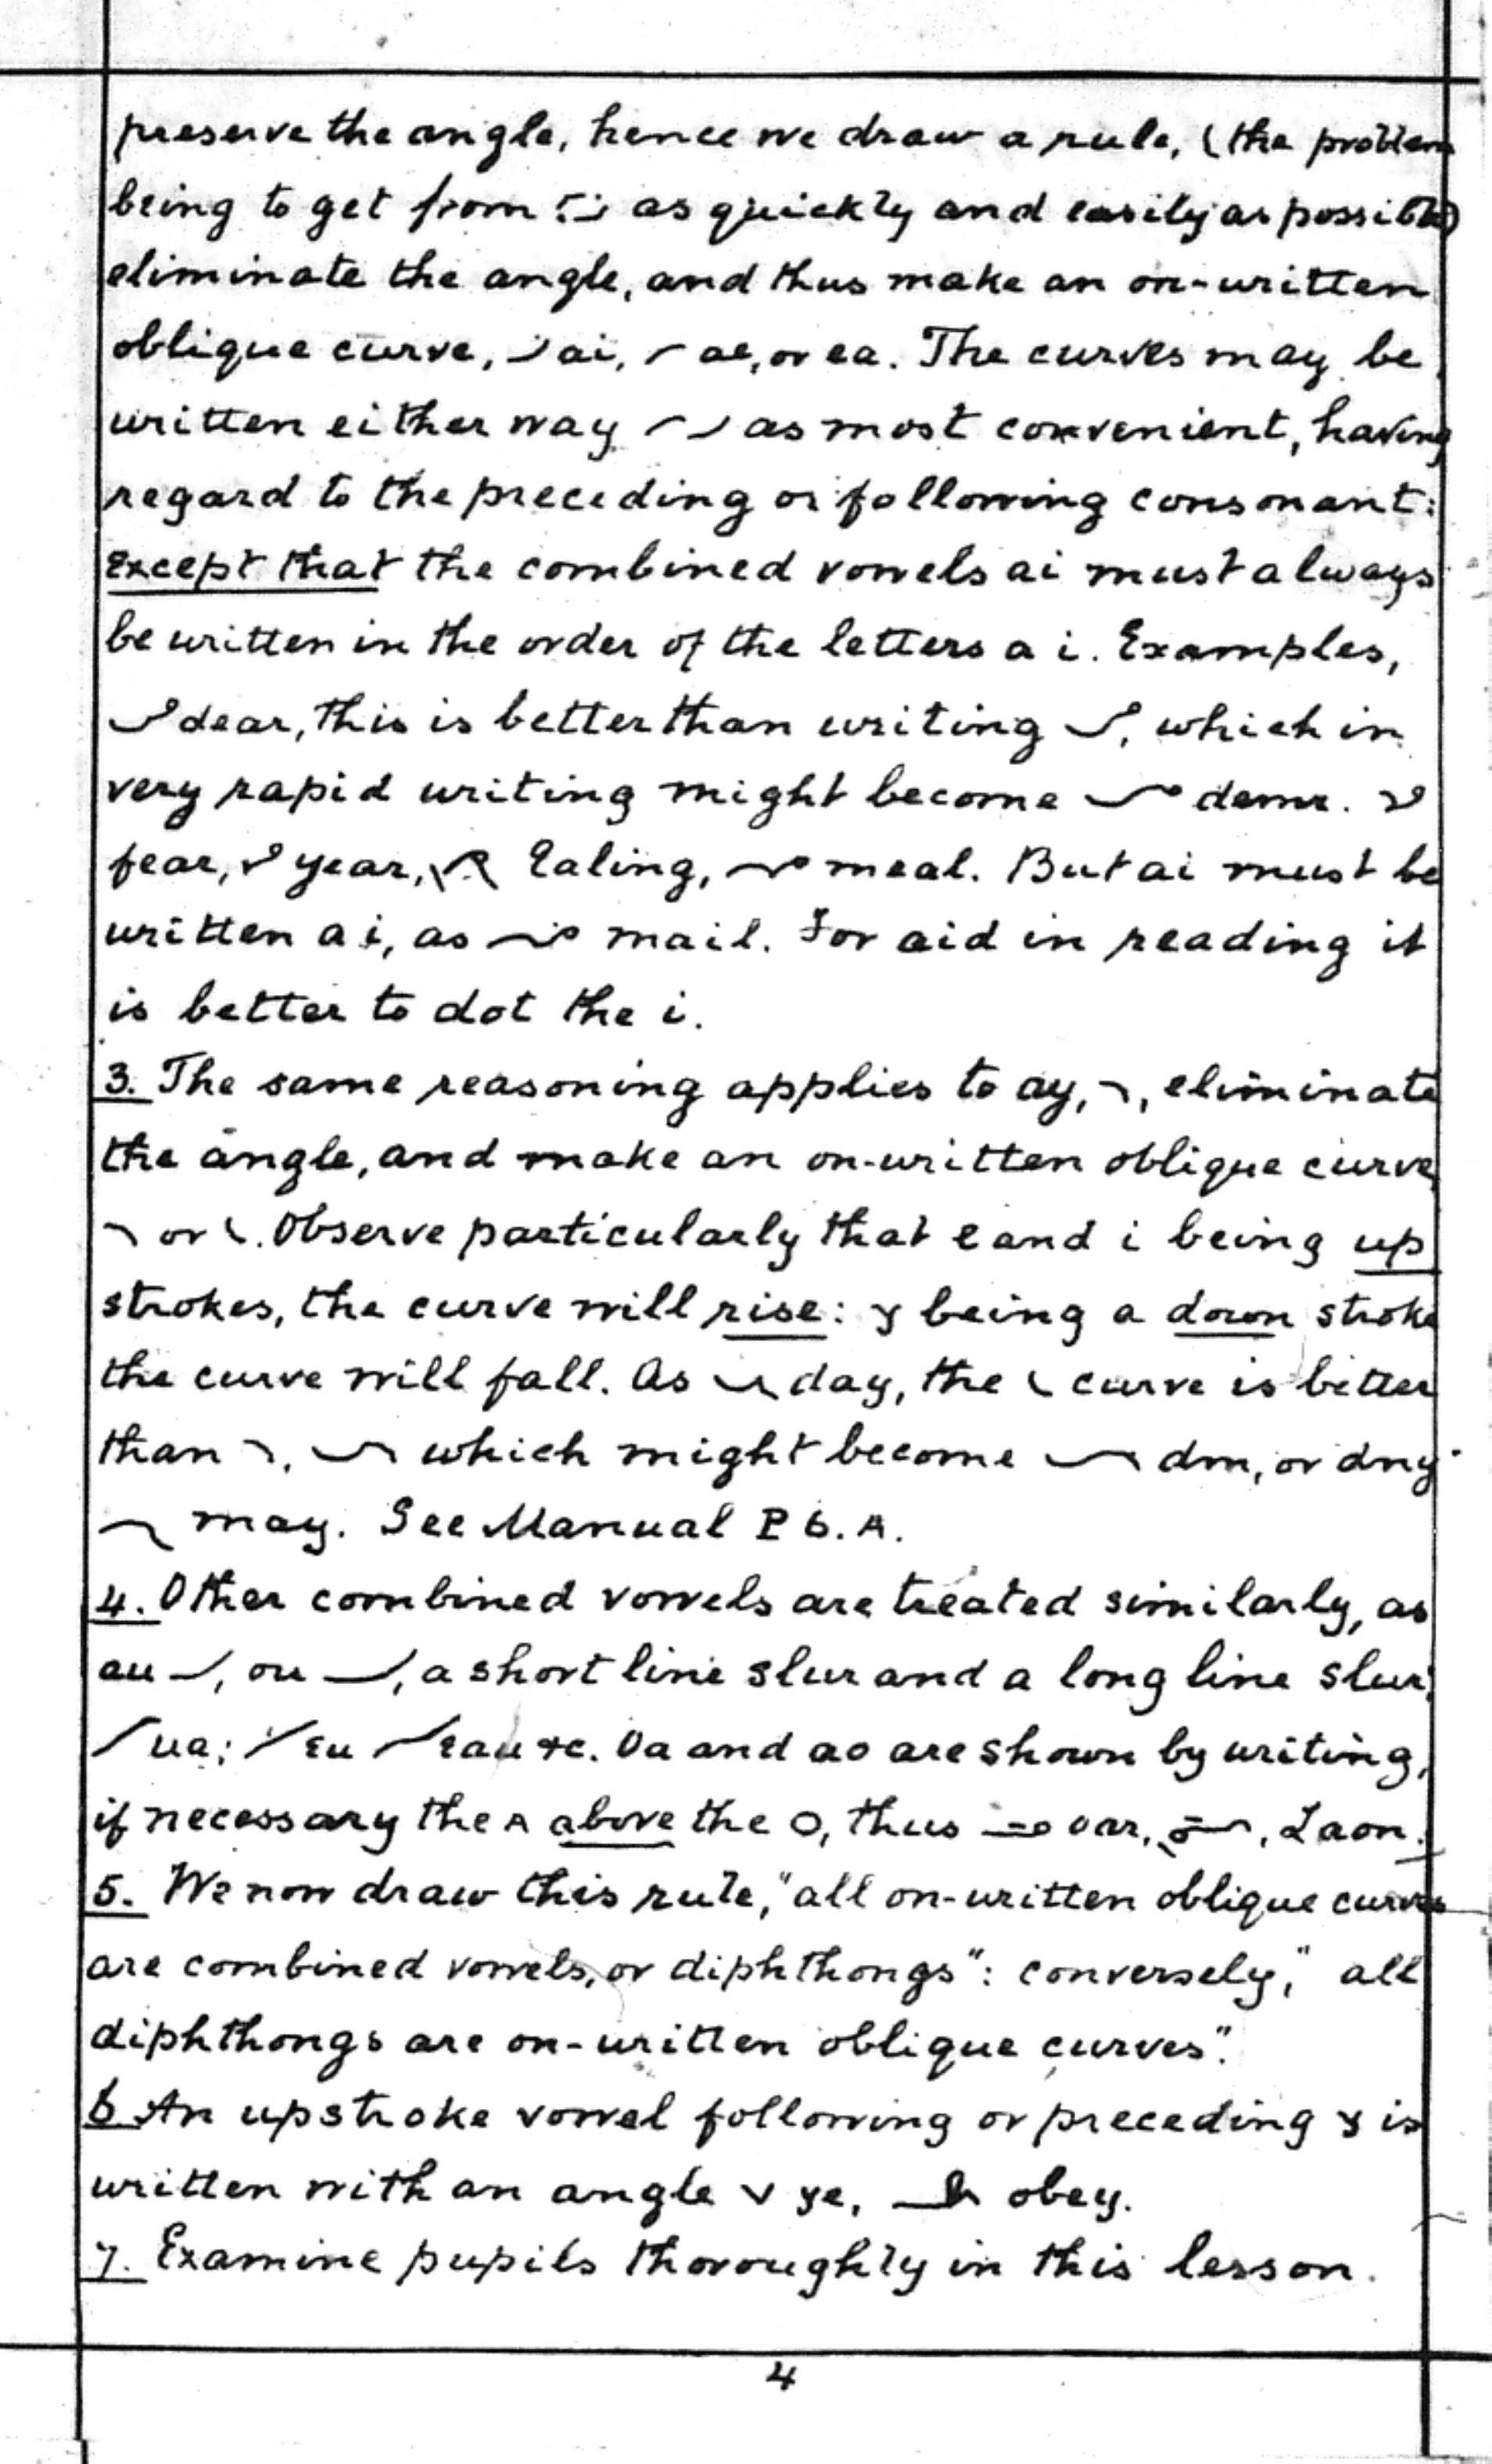 preserve the angle, hence we draw a rule, (the problem
being to get from as quickly and easily as possible)
eliminate the angle, and thus make an on-written
oblique curve, ai, ae, or ea. The curves may be
written either way as most convenient, having
regard to the preceding or following consonant:
Except that the combined vowels ai must always
be written in the order of the letters a i. Examples,
dear, this is better than writing , which in
very rapid writing might become demr.
fear, year, Ealing, meal. But ai must be
written a i, as mail. For aid in reading it
is better to dot the i.
3. The same reasoning applies to ay, , eliminate
the angle, and make an on-written oblique curve,
or . Observe particularly that e and i being up
strokes, the curve will rise: y being a down stroke
the curve will fall. As day, the curve is better
than , which might become dm, or dny
may. See Manual P 6. A.
4. Other combined vowels are treated similarly, as
au , ou , a short line slur and a long line slur;
ua; eu eau &c. Oa and ao are shown by writing,
if necessary the A above the O, thus oar, , Laon.
5. We now draw this rule, "all on-written oblique curves
are combined vowels, or diphthongs": conversely, "all
diphthongs are on-written oblique curves".
6 An upstroke vowel following or preceding y is
written with an angle ye, obey.
7. Examine pupils thoroughly in this lesson.
4